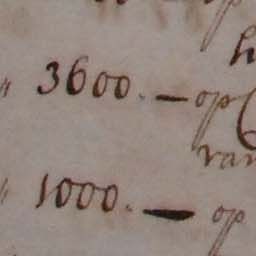 op
h
" 3600. — op
van
" 1000. — op